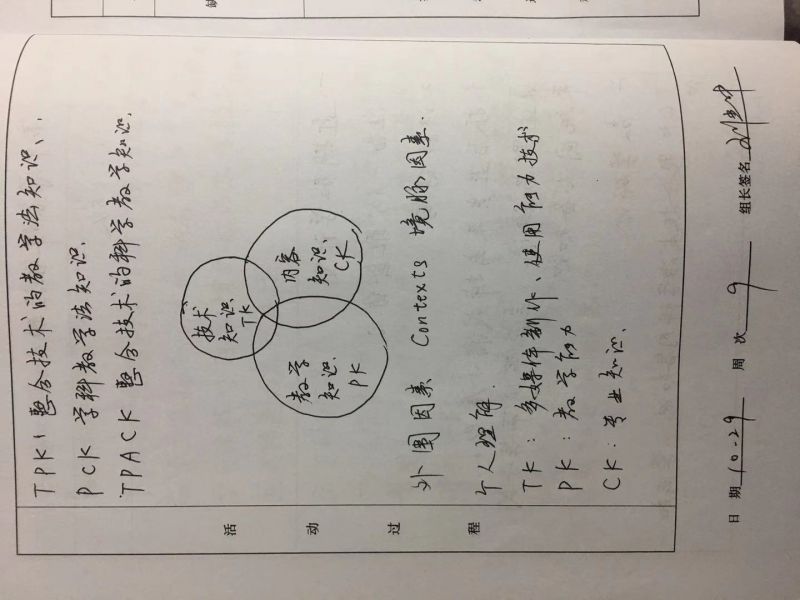 TPK: 整合技术的教学法知识、
PCK 学科教学法知识、
TPACK 整合技术的学科教学知识、
技术
知识、
TK
内容
知识、
CK
教学
知识、
PK
外围因素 Contexts 境脉因素.
个人理解.
TK: 多媒体制作、使用能力技术
PK: 教学能力
CK: 专业知识、
活动过程
日期 10.29 周次 9 组长签名